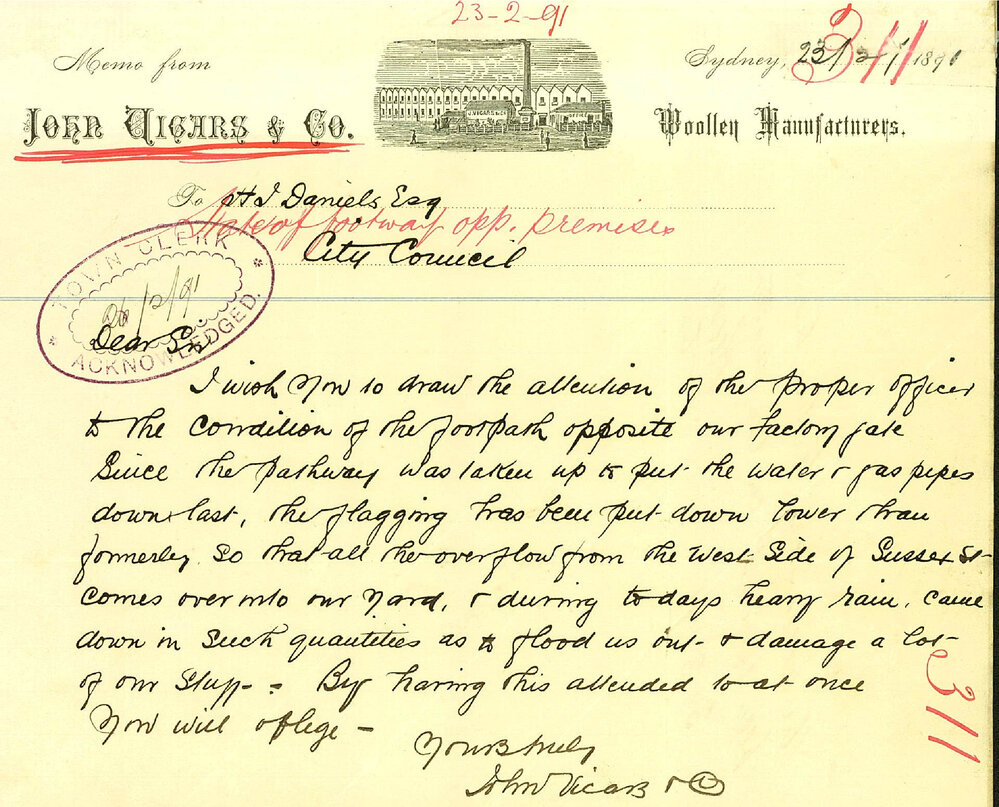 23-2-91
311
Memo from
Sydney, 23/2/1891
JOHN VICARS & CO.
J. VICARS & CO
Woollen Manufacturers.
To H J Daniels Esq
State of footway opp. premises
City Council
TOWN CLERK
26/2/91
ACKNOWLEDGED.
Dear Sir
I wish You to draw the attention of the proper officer
to the condition of the footpath opposite our factory gate
Since the pathway was taken up to put the water & gas pipes
down last, the flagging has been put down lower than
formerley so that all the overflow from the West Side of Sussex St
comes over into our Yard, & during to days heavy rain, came
down in such quantities as to flood us out & damage a lot
of our Stuff - : By having this attended to at once
You will oblege -
Yours truly
John Vicars & Co
311